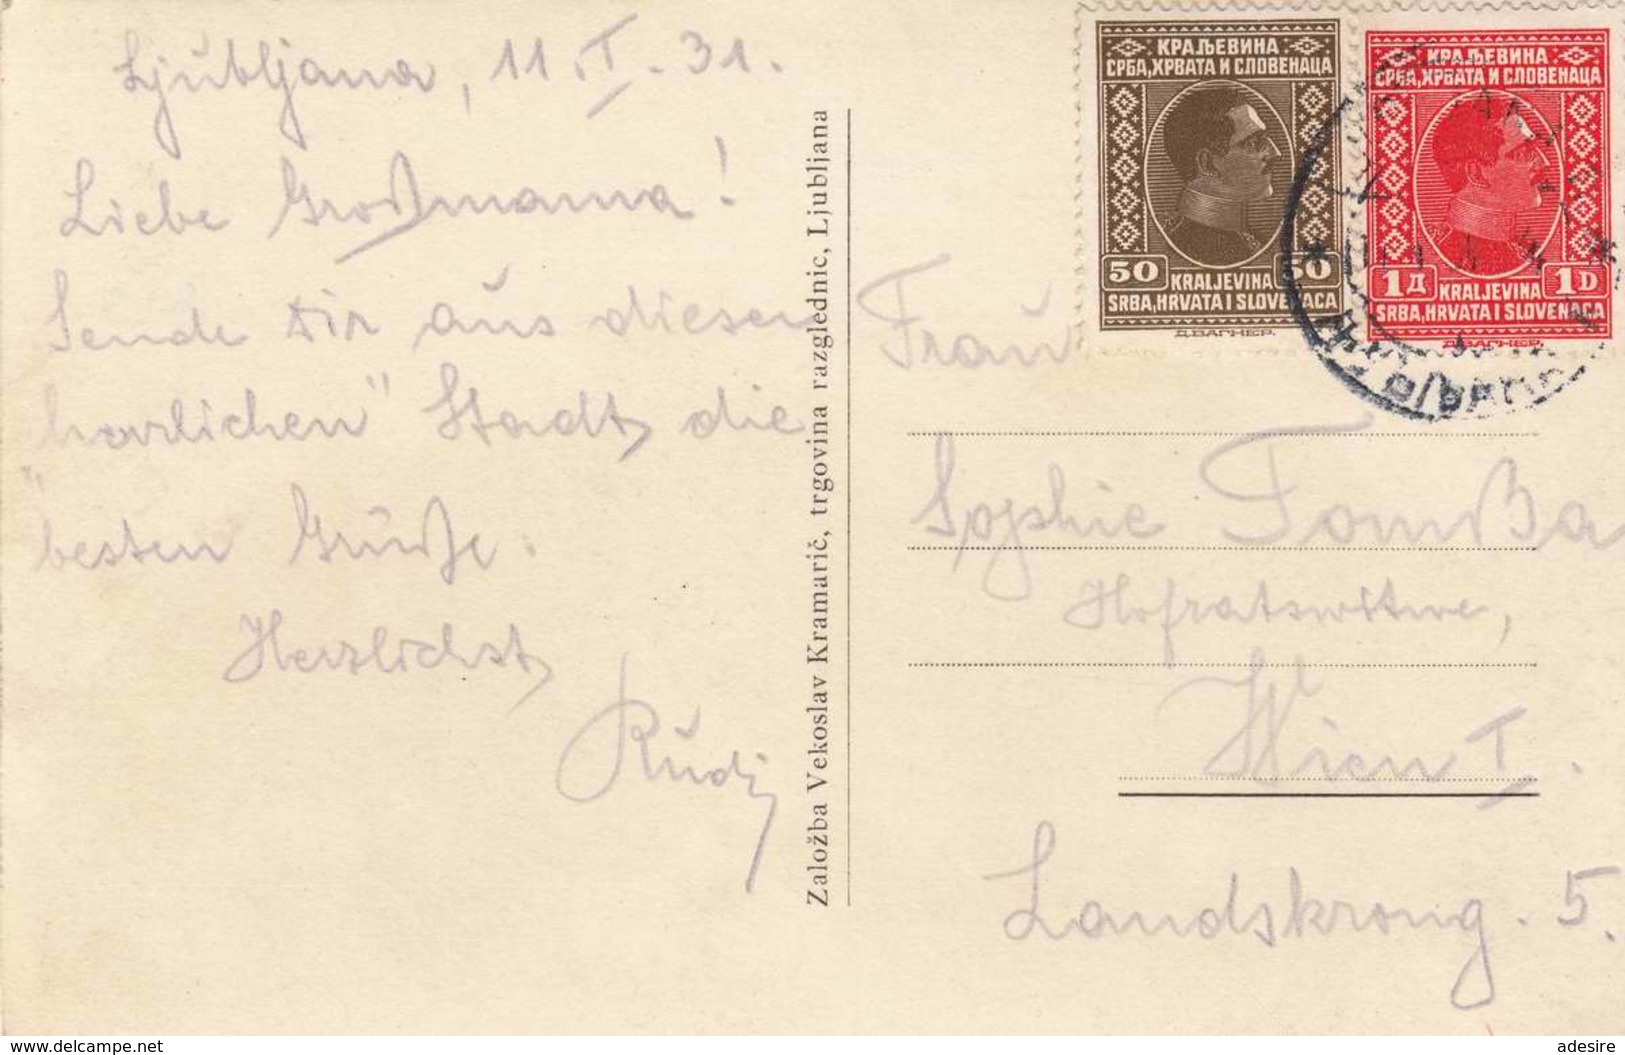 Ljubljana, 11.I.31.
Liebe Großmama!
Sende Dir aus dieser
"herrlichen" Stadt, die
besten Grüße.
Herzlichst,
Rudi
Založba Vekoslav Kramarič, trgovina razglednic, Ljubljana
КРАЉЕВИНА
СРБА, ХРВАТА И СЛОВЕНАЦА
50 50
KRALJEVINA
SRBA, HRVATA I SLOVENACA
Д.ВАГНЕР.
КРАЉЕВИНА
СРБА, ХРВАТА И СЛОВЕНАЦА
1Д 1D
KRALJEVINA
SRBA, HRVATA I SLOVENACA
Д.ВАГНЕР.
Frau
Sophie Tomßa
Hofratswitwe,
Wien I.
Landskrong. 5.
www.delcampe.net
adesire